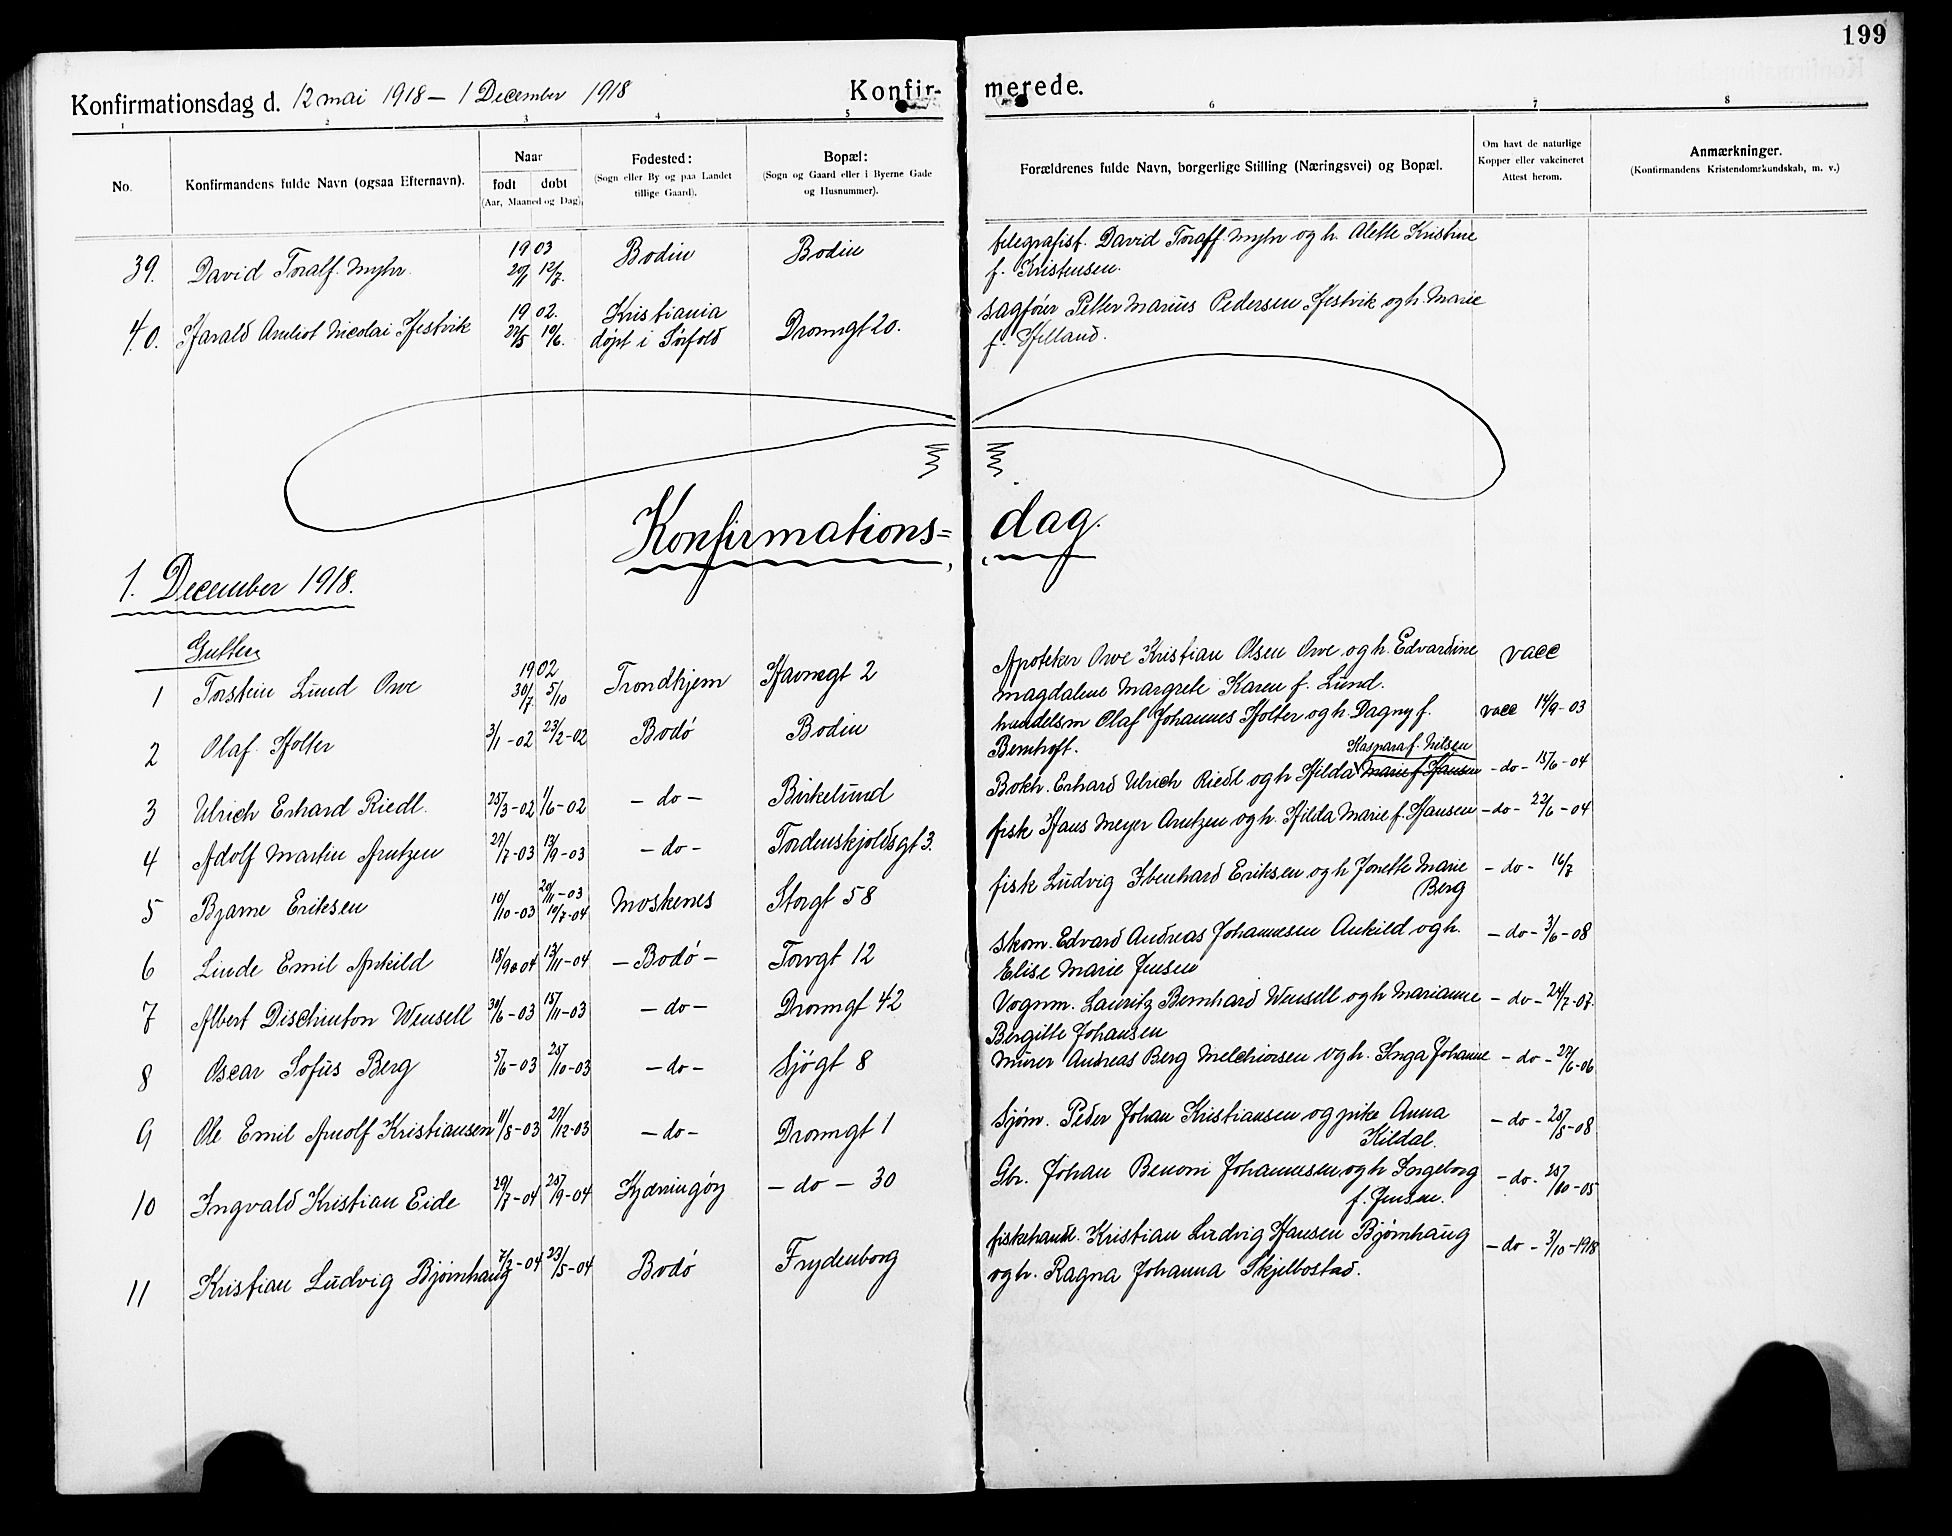 199
Konfirmationsdag d. 12 mai 1918 – 1 December 1918 Konfir- merede.
1 2 3 4 5 6 7 8
No. Konfirmandens fulde Navn (ogsaa Efternavn). Naar født døbt (Aar, Maaned og Dag). Fødested: (Sogn eller By og paa Landet tillige Gaard). Bopæl: (Sogn og Gaard eller i Byerne Gade og Husnummer). Forældrenes fulde Navn, borgerlige Stilling (Næringsvei) og Bopæl. Om havt de naturlige Kopper eller vakcineret Attest herom. Anmærkninger. (Konfirmandens Kristendomskundskab, m. v.)
39. David Toralf Myhr. 1903 12/7. Bodin Bodin telegrafist. David Toralf Myhr og h. Alette Kristine
f. Kristensen.
40. Harald Nicolai Hestvik 1902. 27/5 10/6. Kristiania døpt i Sørfold Dronngt 20. sagfører Petter Marius Pedersen Hestvik og h. Marie
f. Helland.
Konfirmations= dag.
1. December 1918.
Gutter
1 Torstein Lund Owe 1902 30/7 5/10 Trondhjem Havnegt 2 Apoteker Owe Kristian Olsen Owe og h. Edvardine vacc
Magdalene Margrete Karen f. Lund.
2 Olaf Holter 3/1-02 23/2-02 Bodø Bodin handelsm Olaf Johannes Holter og h. Dagny f. vacc 14/9-03
Bernhoft.
Kaspara f. Nilsen
3 Ulrich Erhard Riedl. 25/3-02 1/6-02 – do – Birkelund Bokh. Erhard Ulrich Riedl og h Hilda Marie f. Hansen – do – 15/6-04
4 Adolf Martin Arntzen 29/7-03 13/9-03 – do – Tordenskjoldsgt 3. fisk Hans Meyer Arntzen og h. Hilda Marie f. Hansen – do – 22/6-04
5 Bjarne Eriksen 10/10-03 20/11-03 10/7-04 Moskenes Storgt 58 fisk Ludvig Ibenhard Eriksen og h Jonette Marie – do – 16/7
Berg
6 Linde Emil Ankild 18/9-04 13/11-04 – Bodø – Torvgt 12 Skom. Edvard Andreas Johannesen Ankild og h. – do – 3/6-08
Elise Marie Jensen
7 Albert Dischinton Wensell 30/6-03 15/11-03 – do – Dronngt 42 Vognm. Lauritz Bernhard Wensell og h Marianne – do – 24/7-07.
Bergitte Johansen
8 Oscar Sofus Berg 5/6-03 25/10-03 – do – Sjøgt 8 Murer Andreas Berg Melchiorsen og h. Inga Johanne – do – 27/6-06
9 Ole Emil Arnolf Kristiansen 11/8-03 27/12-03 – do – Dronngt 1 Sjøm. Peder Johan Kristiansen og pike Anna – do – 25/5-08
Kildal.
10 Ingvald Kristian Eide 29/7-04 25/9-04 Kjærringøy – do – 30 Gbr. Johan Benoni Johannesen og h Ingeborg – do – 25/10-05
f. Jensen.
11 Kristian Ludvig Bjørnhaug 7/2-04 23/5-04 Bodø Frydenborg fiskehandl. Kristian Ludvig Hansen Bjørnhaug – do – 3/10-1918
og h. Ragna Johanna Skjelbostad.